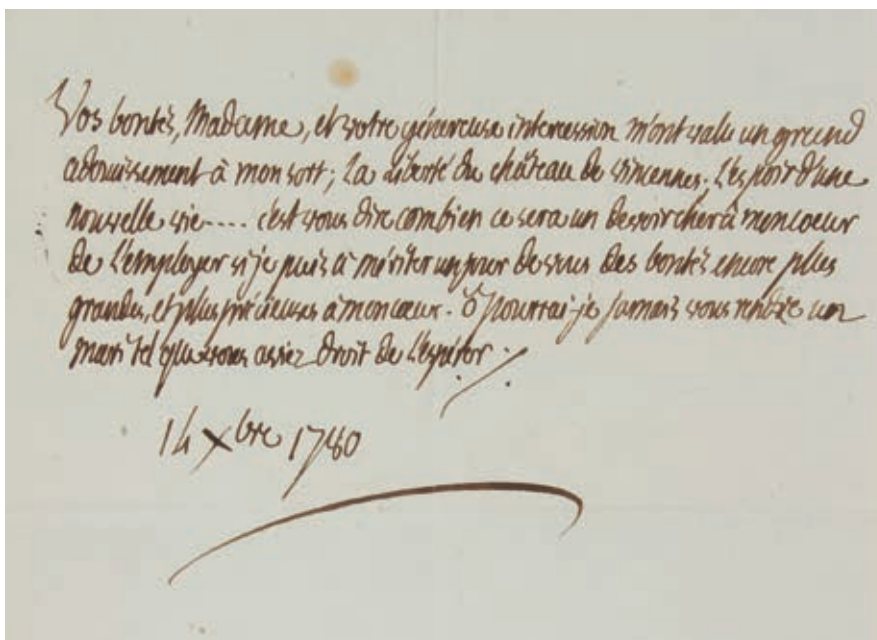 Vos bontés, Madame, et votre généreuse intercession m'ont valu un grand
adouissement à mon sort; La Liberté du château de vincennes. L'espoir d'une
nouvelle vie.... c'est vous dire combien ce sera un devoir cher à mon coeur
de L'employer si je puis à mériter un jour de vous des bontés encore plus
grandes, et plus précieuses à mon coeur. Ô pourrai-je jamais vous rendre un
mari tel que vous aviez droit de L'espérer.
14 Xbre 1780